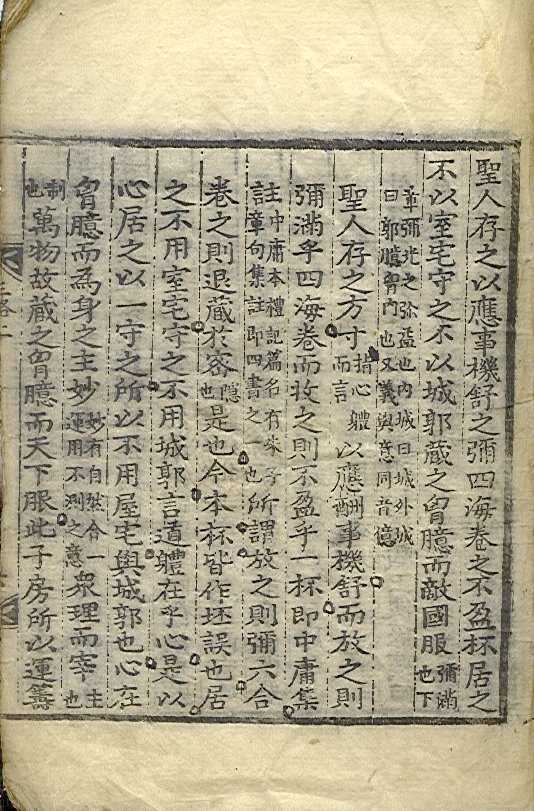 聖人存之以應事機舒之彌四海卷之不盈杯居之
不以室宅守之不以城郭藏之胷臆而敵國服彌滿也下
彌兆之弥盈也內城曰城外城曰郭臆胷內也又義與意同音億
聖人存之方寸指心體而言以應酬事機舒而放之則
彌滿乎四海卷而收之則不盈乎一杯即中庸集
註中庸本禮記篇名有朱子章句集註即四書之一也所謂放之則彌六合
卷之則退藏於密隱也是也今本杯皆作坯誤也居
之不用室宅守之不用城郭言道體在乎心是以
心居之以一守之所以不用屋宅與城郭也心在
胷臆而爲身之主妙妙有自然合一運用不測之意衆理而宰主也
制也萬物故藏之胷臆而天下服此子房所以運籌